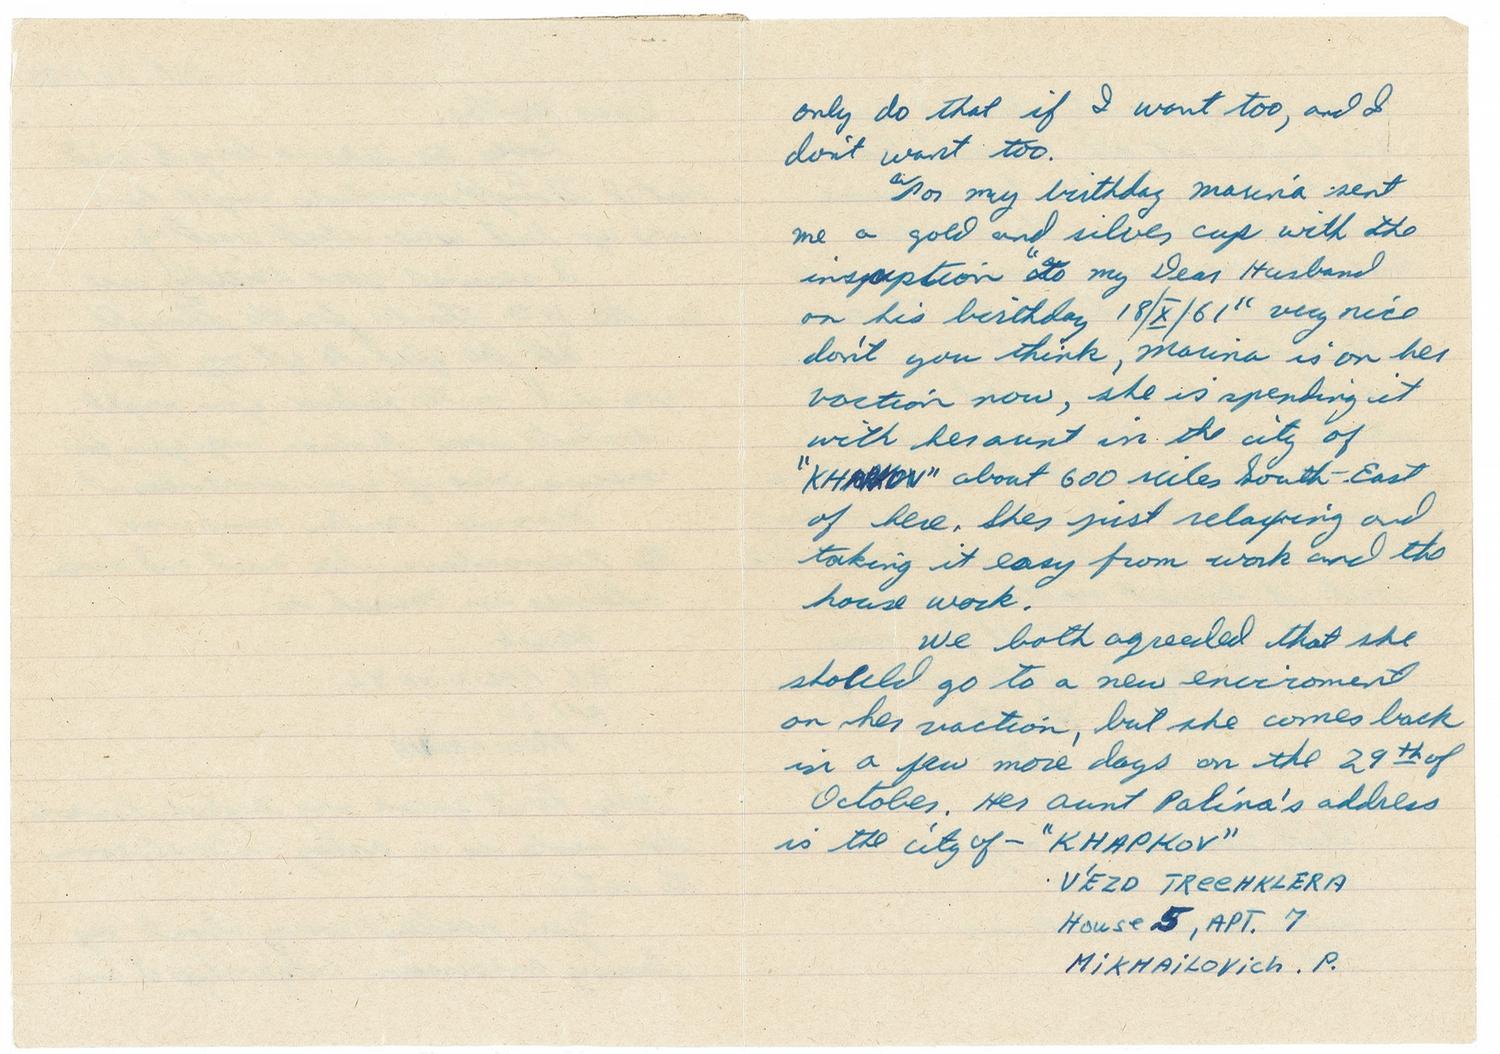 only do that if I want too, and I
don't want too.
For my birthday Marina sent
me a gold and silver cup with the
inscpiption "to my Dear Husband
on his birthday 18/X/61" very nice
don't you think, Marina is on her
vaction now, she is spending it
with her aunt in the city of
"KHARKOV" about 600 miles South-East
of here. Shes just relaxing and
taking it easy from work and the
house work.
We both agreeded that she
should go to a new enviroment
on her vaction, but she comes back
in a few more days on the 29th of
October. Her aunt Palina's address
is the city of - "KHAPKOV"
V'EZD TReeHKLERA
House 5, APT. 7
MiKHAiLOVich. P.